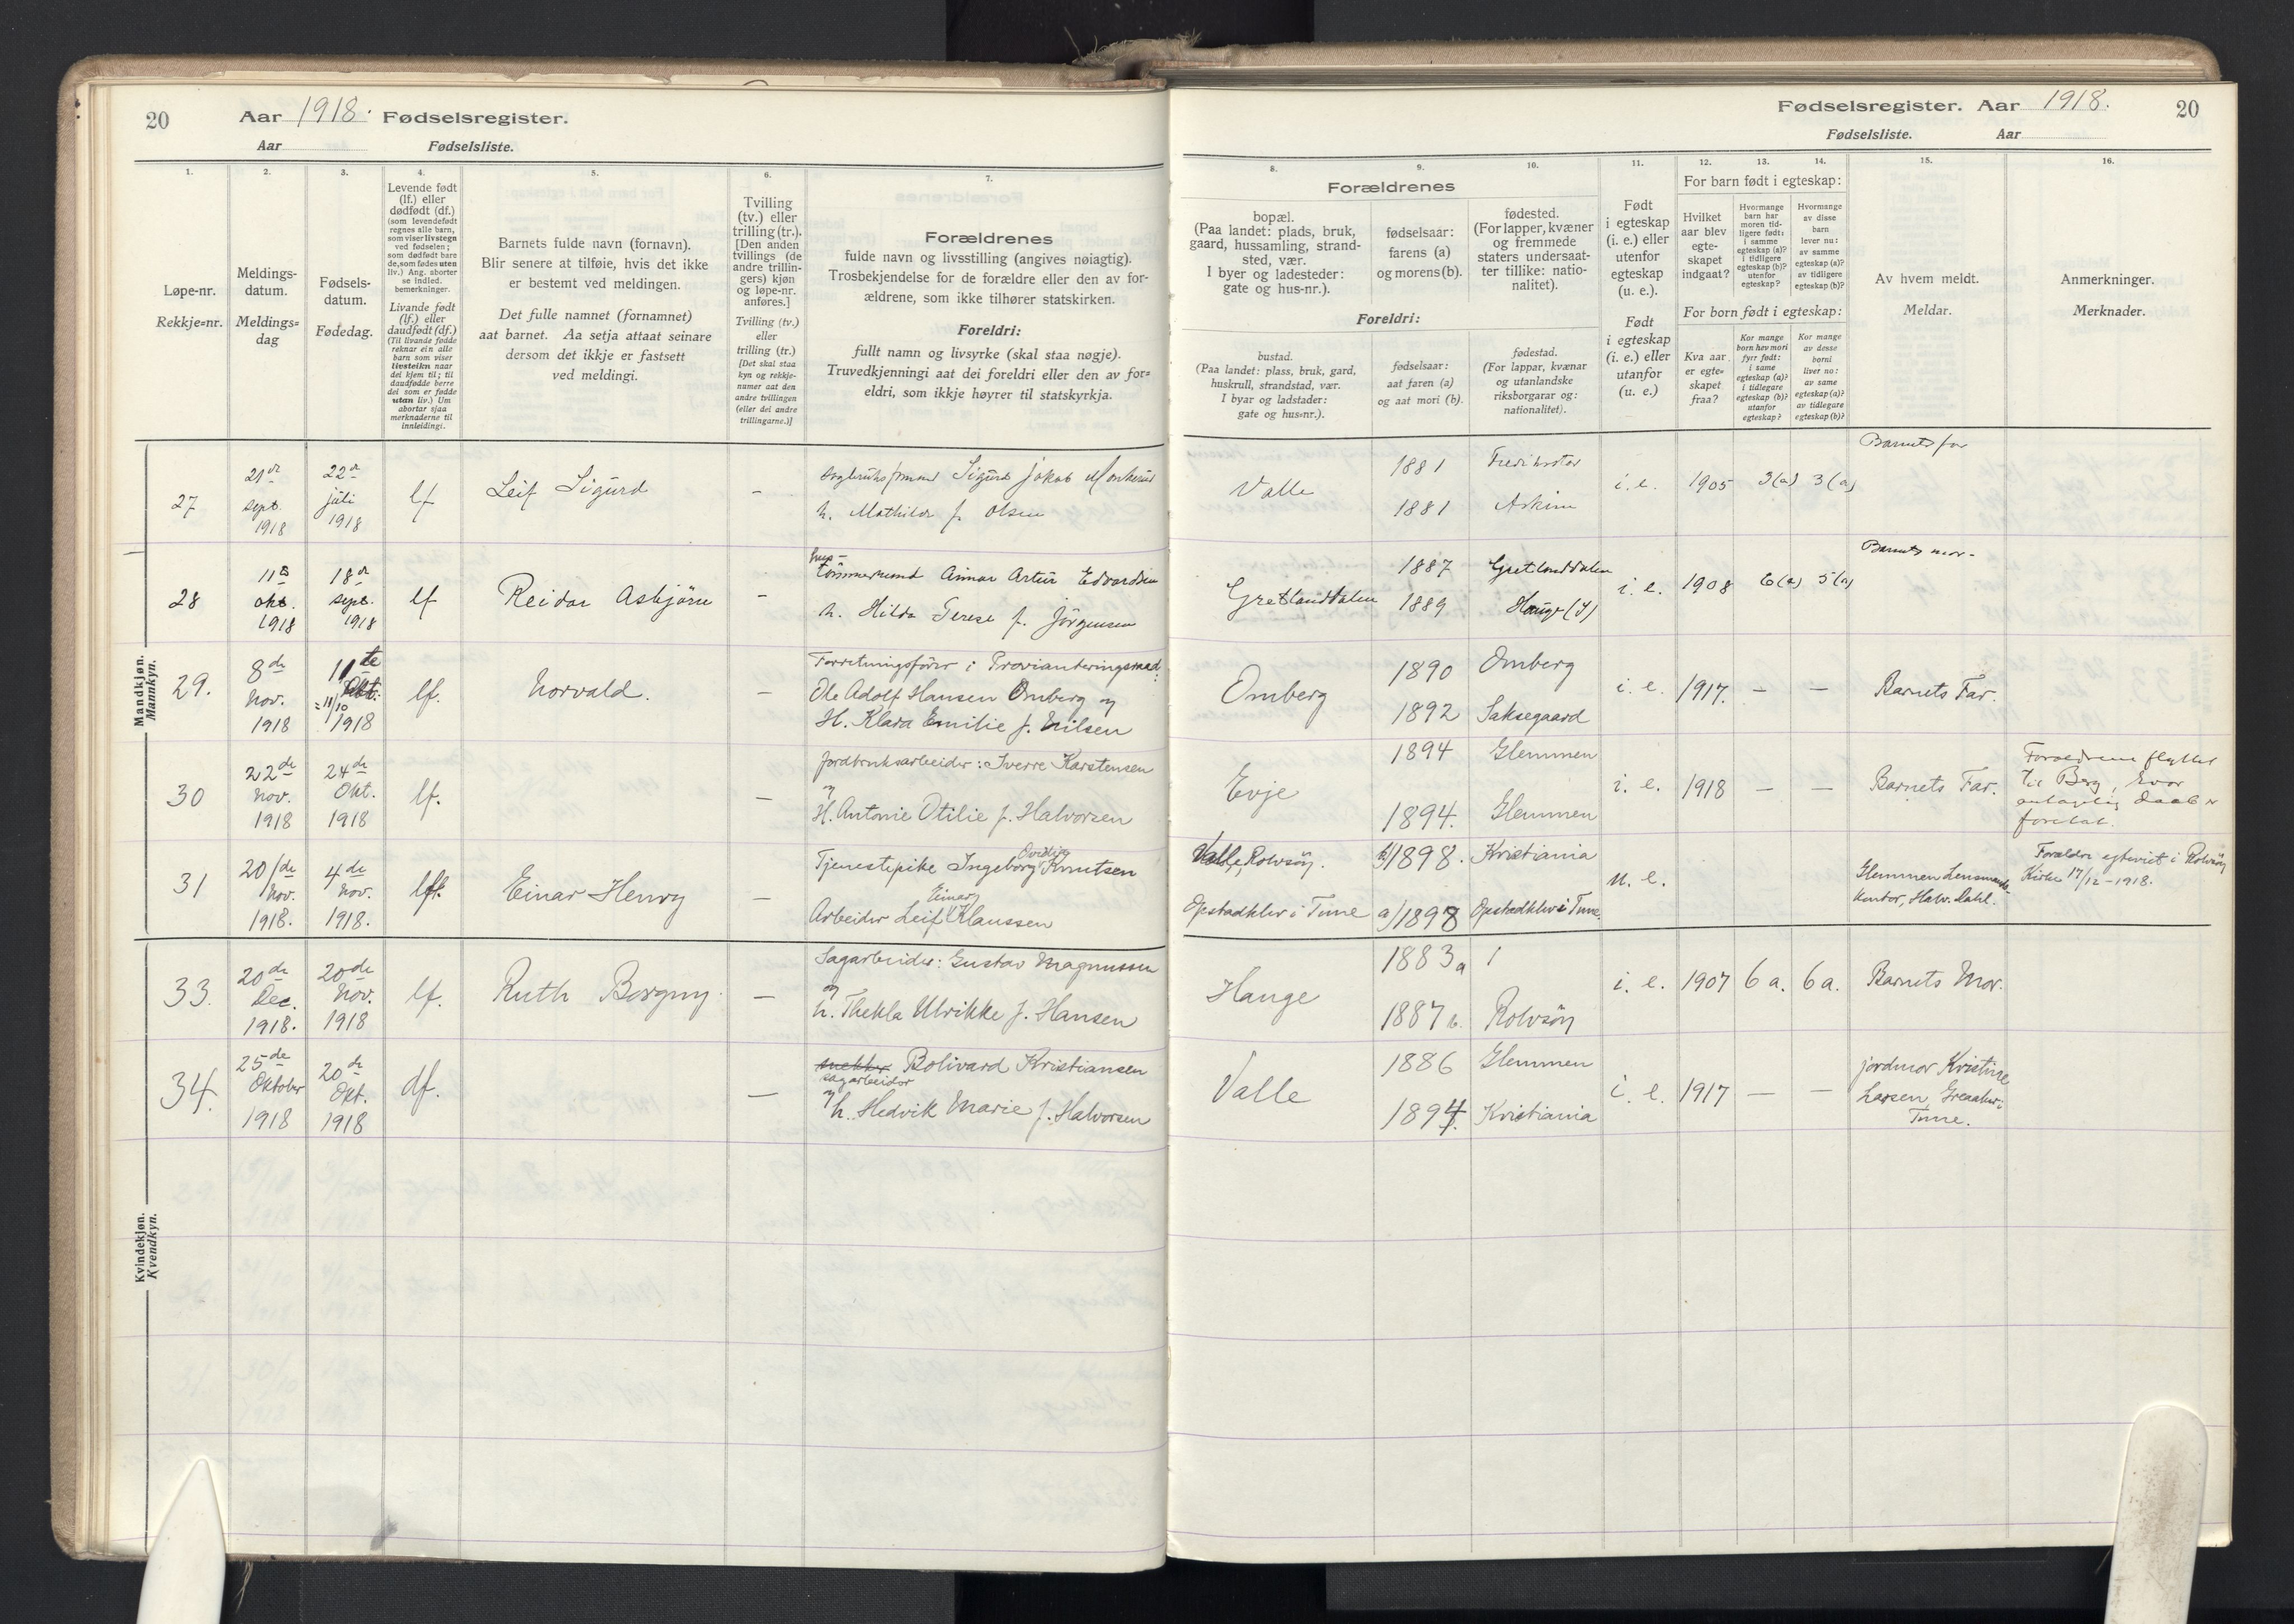 20
Aar 1918. Fødselsregister.
Aar Fødselsliste.
1.
Løpe-nr.
Rekkje=nr.
2.
Meldings-
datum.
Meldings=
dag
3.
Fødsels-
datum.
Fødedag.
4.
Levende født
(lf.) eller
dødfødt (df.)
(som levendefødt
regnes alle barn,
som viser livstegn
ved fødselen;
som dødfødt bare
de, som fødes uten
liv.) Ang. aborter
se indled.
bemerkninger.
Livande født
(lf.) eller
daudfødt (df.)
(Til livande fødde
reknar ein alle
barn som viser
livsteikn naar
dei kjem til; til
daudfødde berre
dei som er fødde
utan liv.) Um
abortar sjaa
merknaderne til
innleidingi.
5.
Barnets fulde navn (fornavn).
Blir senere at tilføie, hvis det ikke
er bestemt ved meldingen.
Det fulle namnet (fornamnet)
aat barnet. Aa setja attaat seinare
dersom det ikkje er fastsett
ved meldingi.
6.
Tvilling
(tv.) eller
trilling (tr.).
[Den anden
tvillings (de
andre trillin-
gers) kjøn
og løpe-nr.
anføres.]
Tvilling (tv.)
eller
trilling (tr.)
[Det skal staa
kyn og rekkje-
numer aat den
andre tvillingen
(eller dei andre
trillingarne.)]
7.
Forældrenes
fulde navn og livsstilling (angives nøiagtig).
Trosbekjendelse for de forældre eller den av for-
ældrene, som ikke tilhører statskirken.
Foreldri:
fullt namn og livsyrke (skal staa nøgje).
Truvedkjenningi aat dei foreldri eller den av for=
eldri, som ikkje høyrer til statskyrkja.
Mandkjøn.
Mannkyn.
27
21de
sept.
1918
22de
juli
1918
lf
Leif Sigurd
-
Sigurd Jakob
h. Mathilde f. Olsen
28
11te
okt.
1918
18de
sept.
1918
lf
Reidar Asbjörn
-
Einar Artur Edvardsen
h. Hilda Terese f. Jörgensen
29.
8de
Nov.
1918
11te
Okt.
= 11/10
1918
lf.
Norvald.
-
Forretningsförer i Provianteringsraad:
Ole Adolf Hansen Omberg og
H. Klara Emilie f. Nilsen
30
22de
Nov.
1918
24de
Okt.
1918
lf.
-
Jordbruksarbeider: Sverre Karstensen
og
H. Antonie Otilie f. Halvorsen
31
20/de
Nov.
1918.
4de
Nov.
1918.
lf.
Einar Henry
-
Ovidia
Tjenestepike Ingeborg Knutsen
Einar
Arbeider Leif Klaussen
Kvindekjøn.
Kvendkyn.
33.
20de
Dec.
1918.
20de
Nov.
1918
lf.
Ruth Borgny.
-
Sagarbeider: Gustav Magnussen
og
h. Thekla Ulrikke f. Hansen
34.
25de
Oktober
1918
20de
Okt.
1918
df.
-
snekker Bolivard Kristiansen
sagarbeider
og h. Hedvik Marie f. Halvorsen
Fødselsregister. Aar 1918.
20
Fødselsliste. Aar
Forældrenes
8.
bopæl.
(Paa landet: plads, bruk,
gaard, hussamling, strand-
sted, vær.
I byer og ladesteder:
gate og hus-nr.).
9.
fødselsaar:
farens (a)
og morens (b).
10.
fødested.
(For lapper, kvæner
og fremmede
staters undersaat-
ter tillike: natio-
nalitet).
Foreldri:
bustad.
(Paa landet: plass, bruk, gard,
huskrull, strandstad, vær.
I byar og ladstader:
gate og hus=nr.).
fødselsaar:
aat faren (a)
og aat mori (b).
fødestad.
(For lappar, kvænar
og utanlandske
riksborgarar og:
nationalitet).
11.
Født
i egteskap
(i. e.) eller
utenfor
egteskap
(u. e.).
Født
i egteskap
(i. e.) eller
utanfor
(u. e.)
12.
13.
14.
For barn født i egteskap:
Hvilket
aar blev
egte-
skapet
indgaat?
Hvormange
barn har
moren tid-
ligere født:
i samme
egteskap (a)?
i tidligere
egteskap (b)?
utenfor
egteskap?
Hvormange
av disse
barn
lever nu:
av samme
egteskap (a)?
av tidligere
egteskap (b)?
For born født i egteskap:
Kva aar
er egte=
skapet
fraa?
Kor mange
born hev mori
fyrr født:
i same
egteskap (a)?
i tidlegare
egteskap (b)?
utanfor
egteskap?
Kor mange
av desse
borni
liver no:
av same
egteskap (a)?
av tidlegare
egteskap (b)?
15.
Av hvem meldt.
Meldar.
16.
Anmerkninger.
Merknader.
Valle
1881
1881
Fredrikstad
Askim
i. e.
1905
3(a)
3(a)
Barnets far
Gretlanddalen
1887
1889
Gretlanddalen
Hauge (T)
i. e.
1908
6(a)
5(a)
Barnets mor-
Omberg
1890
1892
Omberg
Saksegaard
i. e.
1917.
-
-
Barnets Far.
Evje
1894
1894.
Glemmen
Glemmen
i. e.
1918
-
-
Barnets Far.
Forældrene flyttet
til Berg, hvor
antagelig daab er
foretat.
Valle, Rolvsöy.
Opstadklev i Tune
b/1898.
a/1898
Kristiania
Opstadklev i Tune.
u. e.
Glemmen Lensmands-
kontor, Halv. Dahl.
Forældre egteviet i Rolvsöy
Kirke 17/12-1918.
Hauge
1883 a
1887 b.
Rolvsöy
i. e.
1907
6 a.
6 a.
Barnets Mor.
Valle
1886
1894.
Glemmen
Kristiania
i. e.
1917
-
-
jordmor Kristine
Larsen, Greaaker:
Tune.